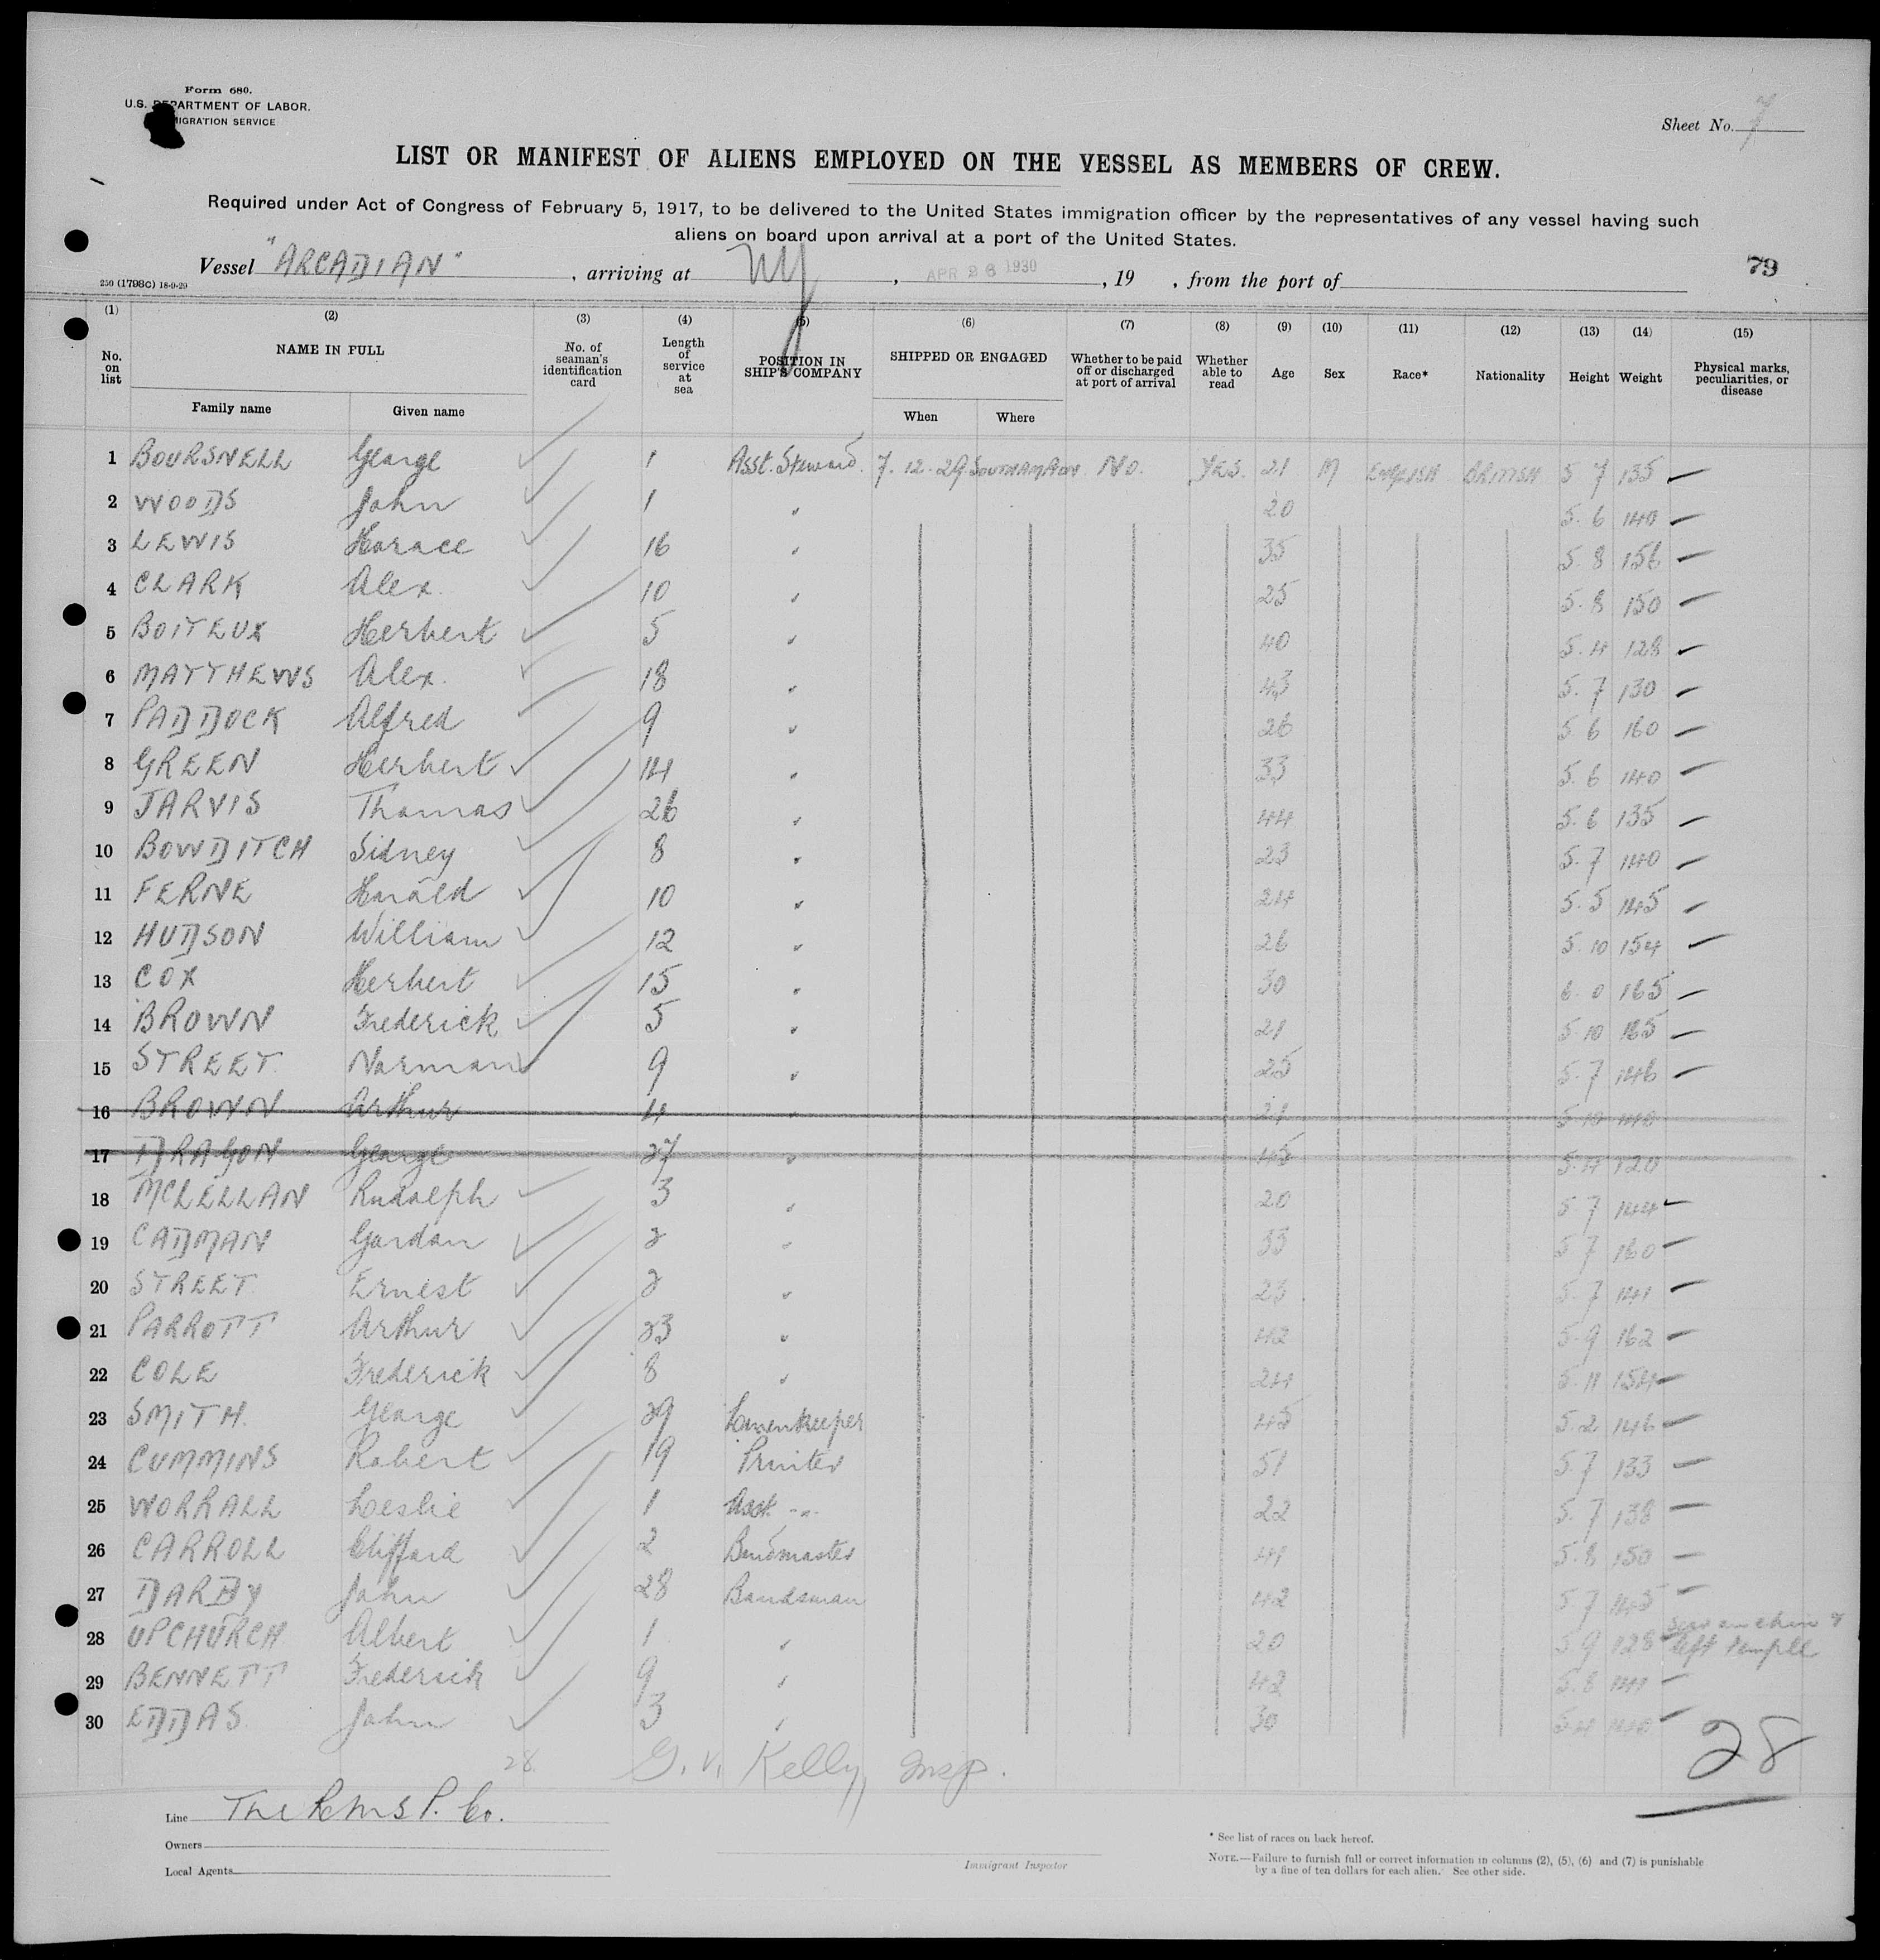 Form 680.
U.S. DEPARTMENT OF LABOR.
MIGRATION SERVICE
Sheet No. 7
LIST OR MANIFEST OF ALIENS EMPLOYED ON THE VESSEL AS MEMBERS OF CREW.
Required under Act of Congress of February 5, 1917, to be delivered to the United States immigration officer by the representatives of any vessel having such
aliens on board upon arrival at a port of the United States.
Vessel "ARCADIAN", arriving at NY, APR 26 1930, 19 , from the port of
79
250 (1798C) 18-9-29
(1) (2) (3) (4) (5) (6) (7) (8) (9) (10) (11) (12) (13) (14) (15)
No. on list NAME IN FULL No. of seaman's identification card Length of service at sea POSITION IN SHIP'S COMPANY SHIPPED OR ENGAGED Whether to be paid off or discharged at port of arrival Whether able to read Age Sex Race* Nationality Height Weight Physical marks, peculiarities, or disease
Family name Given name When Where
1 BOURSNELL George 1 Asst. Steward. 7.12.29 SOUTHAMPTON No. YES. 21 M ENGLISH BRITISH 5 7 135 —
2 WOODS John 1 " 20 5. 6 140 —
3 LEWIS Horace 16 " 35 5. 8 156 —
4 CLARK Alex. 10 " 25 5. 8 150 —
5 BOITEUX Herbert 5 " 40 5. 4 128 —
6 MATTHEWS Alex. 18 " 43 5. 7 130 —
7 PADDOCK Alfred 9 " 26 5. 6 160 —
8 GREEN Herbert 14 " 33 5. 6 140 —
9 JARVIS Thomas 26 " 44 5. 6 135 —
10 BOWDITCH Sidney 8 " 23 5. 7 140 —
11 FERNE Harold 10 " 24 5. 5 145 —
12 HUDSON William 12 " 26 5. 10 154 —
13 COX Herbert 15 " 30 6. 0 165 —
14 BROWN Frederick 5 " 21 5. 10 165 —
15 STREET. Norman 9 " 25 5. 7 146 —
16 BROWN Arthur 4 " 21 5. 10 140
17 DRAGON George 27 " 45 5. 4 120
18 MCLELLAN Rudolph 3 " 20 5 7 144 —
19 CADMAN Gordon 2 " 33 5 7 160 —
20 STREET. Ernest 2 " 23 5. 7 141 —
21 PARROTT Arthur 23 " 42 5. 9 162 —
22 COLE Frederick 8 " 24 5. 11 154 —
23 SMITH. George 29 Linenkeeper 45 5. 2 146 —
24 CUMMINS Robert 19 Printer 51 5. 7 133 —
25 WORRALL Leslie 1 Asst. -"- 22 5. 7 138 —
26 CARROLL Clifford 2 Bandmaster 41 5. 8 150 —
27 DARBY John 28 Bandsman 42 5 7 145 —
28 UPCHURCH Albert 1 " 20 5 9 128 Scar on chin & left temple
29 BENNETT Frederick 9 " 42 5. 8 141 —
30 EDDAS. John 3 " 30 5 4 140 —
28 G. V. Kelly, Insp. 28
Line The R M S P. Co.
Owners
Local Agents
Immigrant Inspector
* See list of races on back hereof.
NOTE.—Failure to furnish full or correct information in columns (2), (5), (6) and (7) is punishable
by a fine of ten dollars for each alien. See other side.